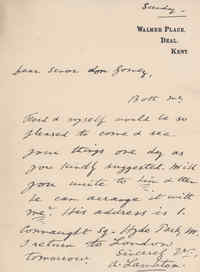 Sunday
WALMER PLACE,
DEAL,
KENT
Dear Senor Don
Both my
and myself would be so
pleased to come & see
your things one day as
you kindly suggested. Will
you write to him & then
he can arrange it with
me? His address is 1.
Connaught Sq. Hyde Park W.
I return to London
tomorrow. Sincerely Yrs.
A. Lambton.